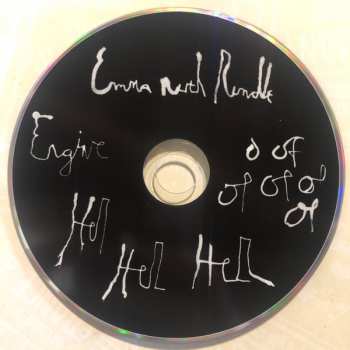 Emma Ruth Rundle
Engine
o of
of of o
of
Hel
Hel Hell